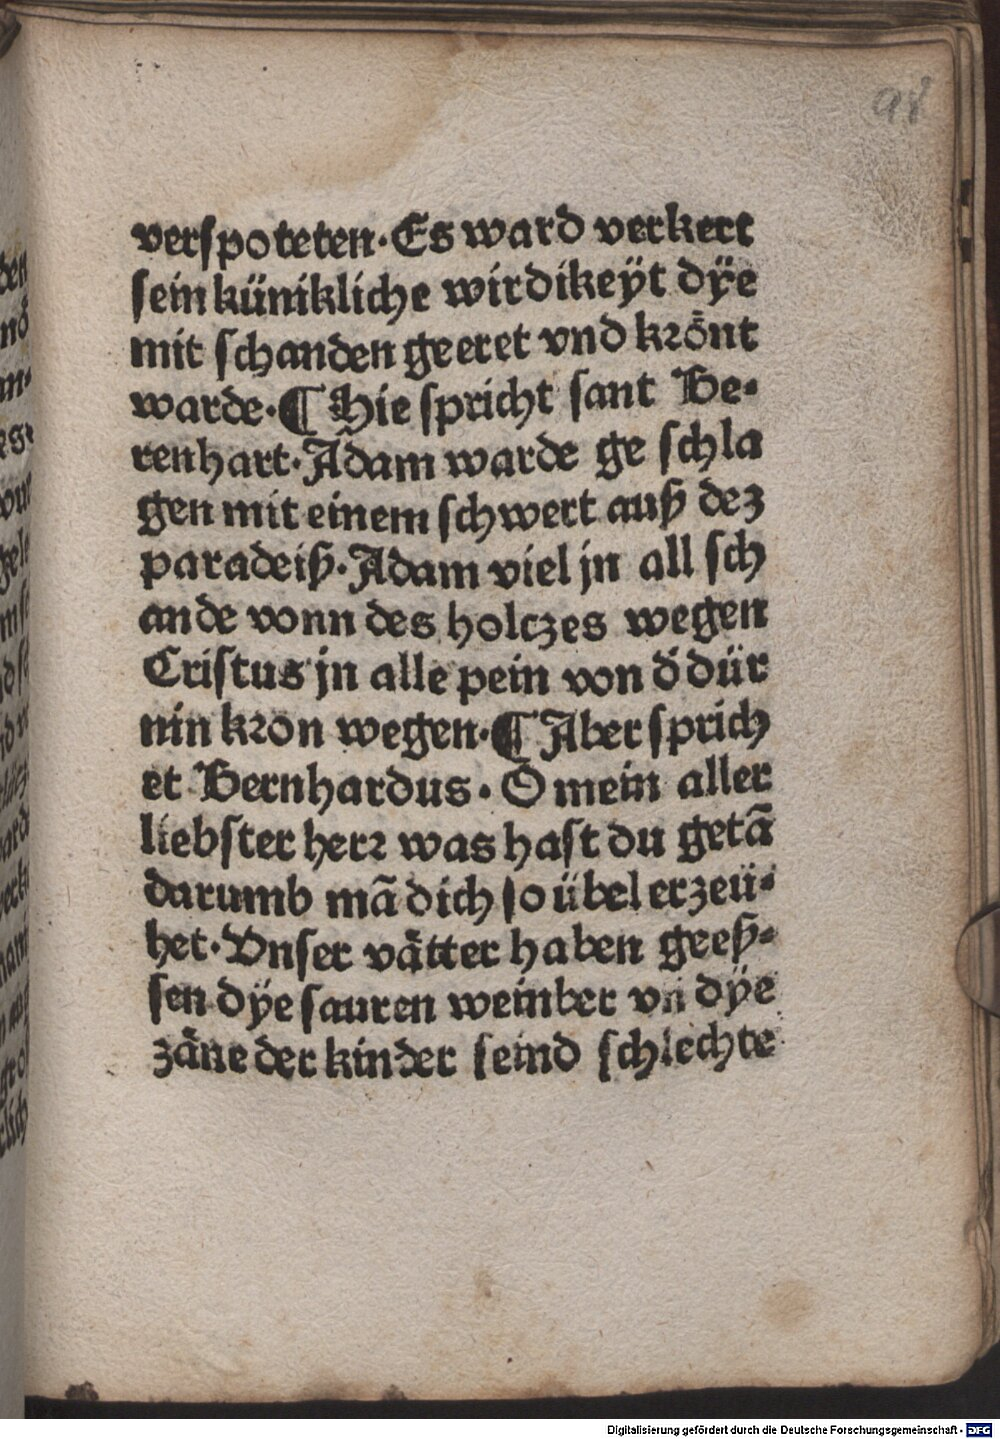 98
verspoteten·Es ward verkert
sein künikliche wirdikeÿt dÿe
mit schanden geeret vnd krönt
warde·¶ Hie spricht sant Be-
renhart·Adam warde ge schla
gen mit einem schwert auß dez
paradeiß·Adam viel jn all sch
ande vonn des holczes wegen
Cristus jn alle pein von d̄ dür
nin kron wegen·¶ Aber sprich
et Bernhardus·O mein aller
liebster herr was hast du getā
darumb mā dich so übel erzeü-
het·Vnser vätter haben geeß-
sen dÿe sauren weinber vn dÿe
zäne der kinder seind schlechte
Digitalisierung gefördert durch die Deutsche Forschungsgemeinschaft - DFG